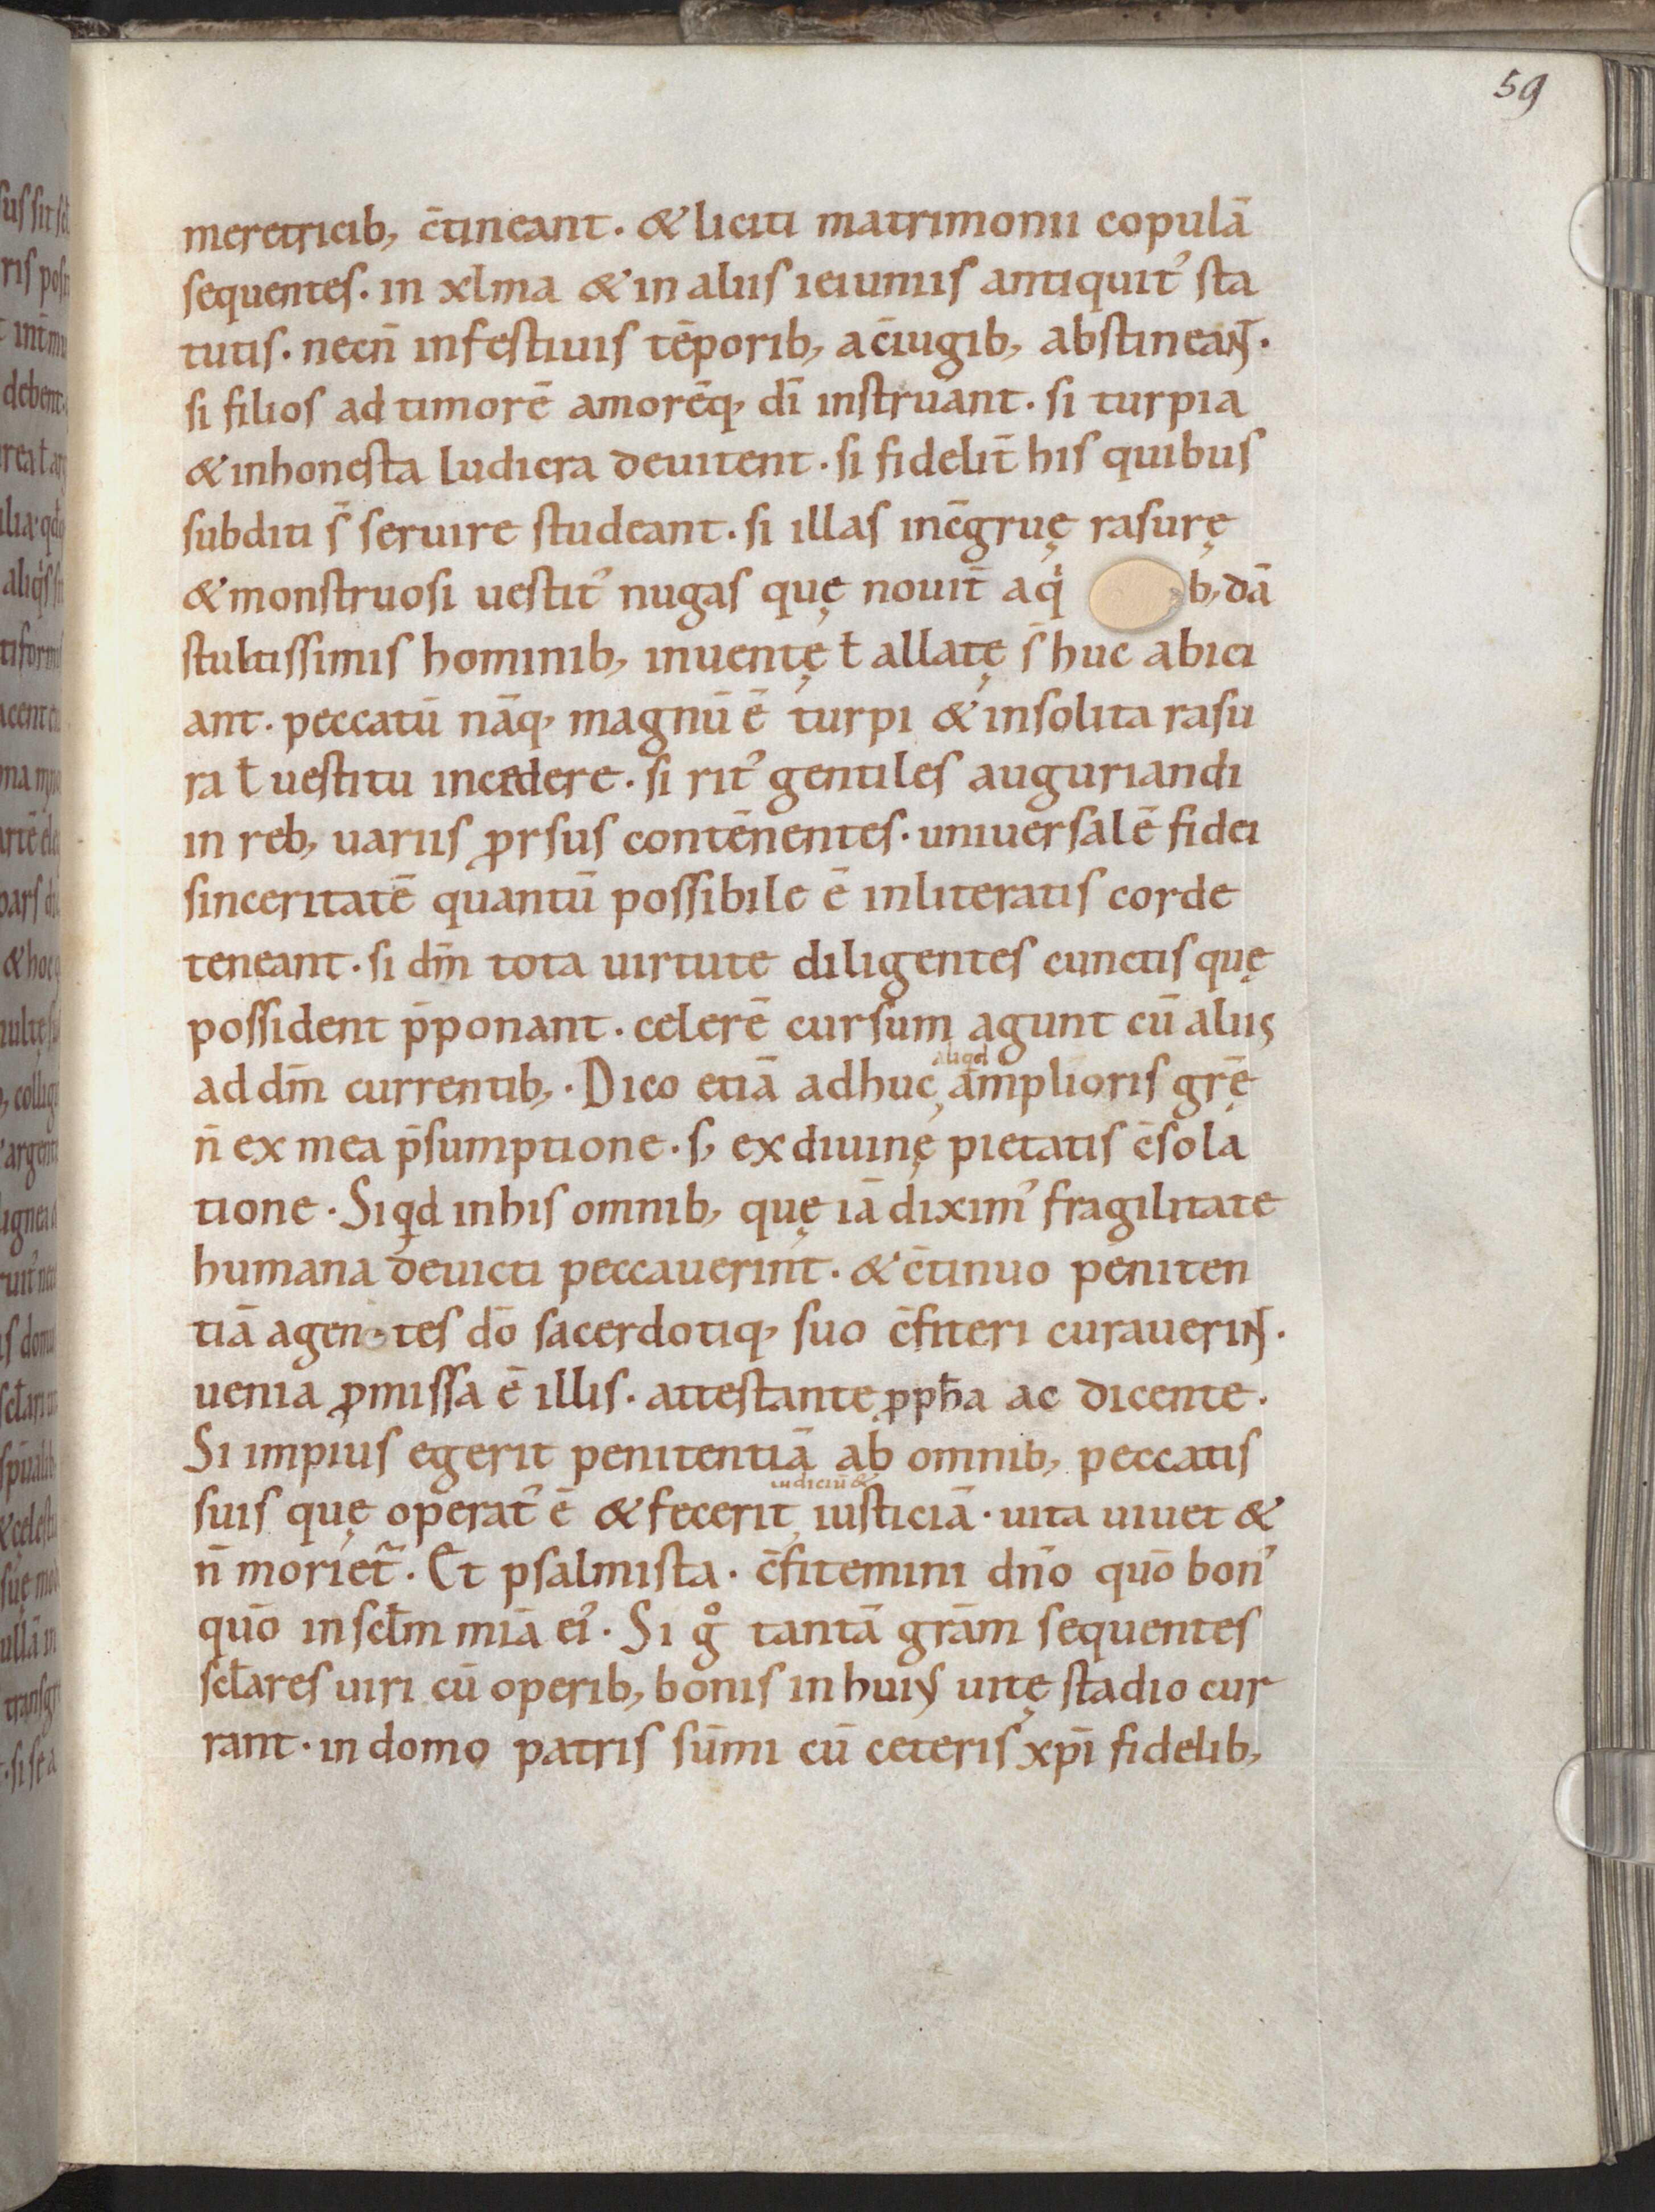 59
meretricib; c̄tineant · & liciti matrimonii copulā
sequentes · in xlma & in aliis ieiuniis antiquit᾽ sta
tutis · necn̄ in festiuis tēporib; a c̄iugib; abstineant ·
si filios ad timorē amorēq; dī instruant · si turpia
& inhonesta ludicra deuitent · si fidelit̄ his quibus
subditi s̄ seruire studeant · si illas inc̄gruę rasurę
& monstruosi uestit᾽ nugas quę nouit̄ a qͥ b;dā
stultissimis hominib; inuentę ł allatę s̄ huc abici
ant · peccatū nāq; magnū ē turpi & insolita rasu
ra ł uestitu incedere · si rit᾽ gentiles auguriandi
in reb; uariis ꝓrsus contēnentes · uniuersalē fidei
sinceritatē quantū possibile ē inliteratis corde
teneant · si dm̄ tota uirtute diligentes cunctis quę
possident p̄ponant · celerē cursum agunt cū aliis
aliqd
ad dm̄ currentib; · Dico etiā adhuc, amplioris grę̄
n̄ ex mea p̄sumptione · s; ex diuinę pietatis c̄sola
tione · Siqd in his omnib; quę iā dixim᾽ fragilitate
humana deuicti peccauerint · & c̄tinuo peniten
tiā agentes dō sacerdotiq; suo c̄fiteri curauerint ·
uenia ꝓmissa ē illis · attestante ꝓpħa ac dicente ·
Si impius egerit penitentiā ab omnib; peccatis
iudiciū &
suis quę operat᾽ ē & fecerit, iusticiā · uita uiuet &
n̄ moriet᷑ · Et psalmista · c̄fitemini dn̄o quō bon᾽
quō in scłm miā ei᾽ · Si gͦ tantā grām sequentes
scłares uiri cū operib; bonis in huius uitę stadio cur
rant · in domo patris sūmi cū ceteris xp̄i fidelib;